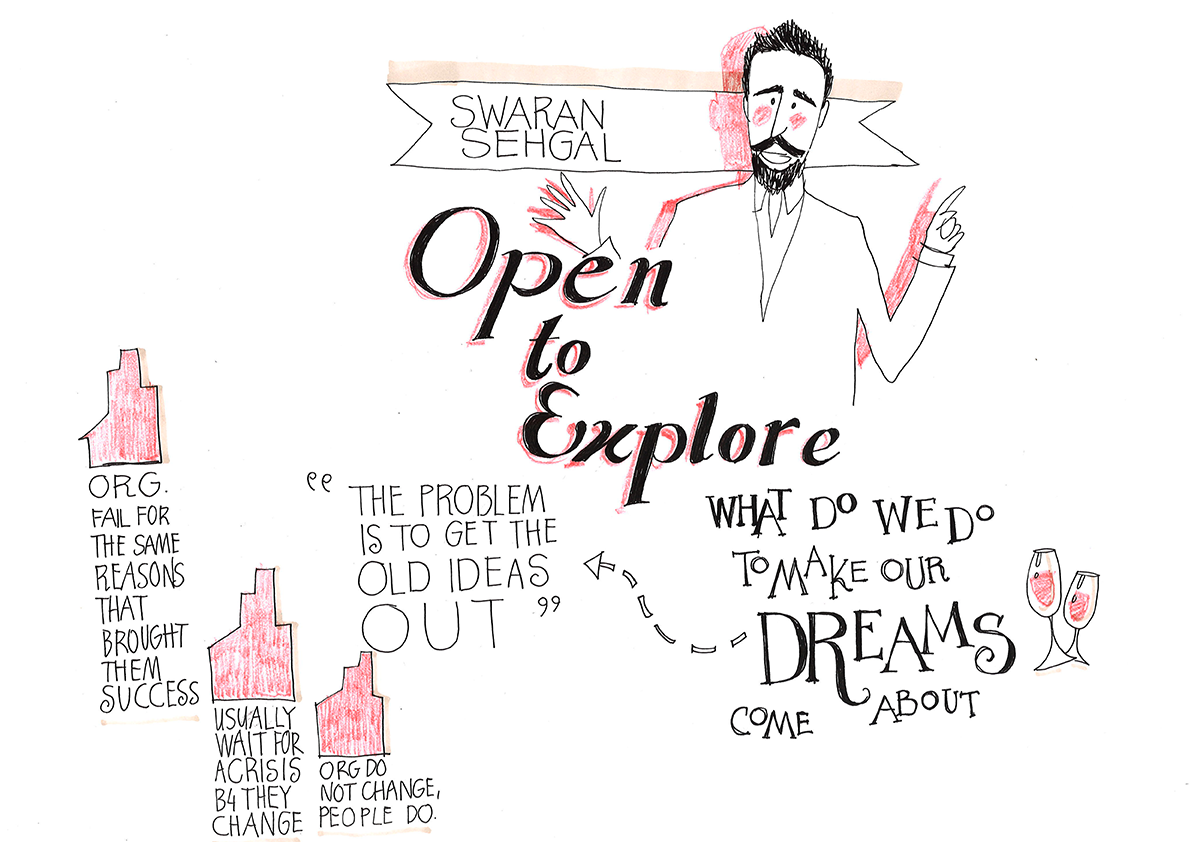 SWARAN
SEHGAL
Open
to
Explore
ORG.
FAIL FOR
THE SAME
REASONS
THAT
BROUGHT
THEM
SUCCESS
USUALLY
WAIT FOR
A CRISIS
B4 THEY
CHANGE
ORG DO
NOT CHANGE,
PEOPLE DO.
“THE PROBLEM
IS TO GET THE
OLD IDEAS
OUT”
WHAT DO WE DO
TO MAKE OUR
DREAMS
COME ABOUT